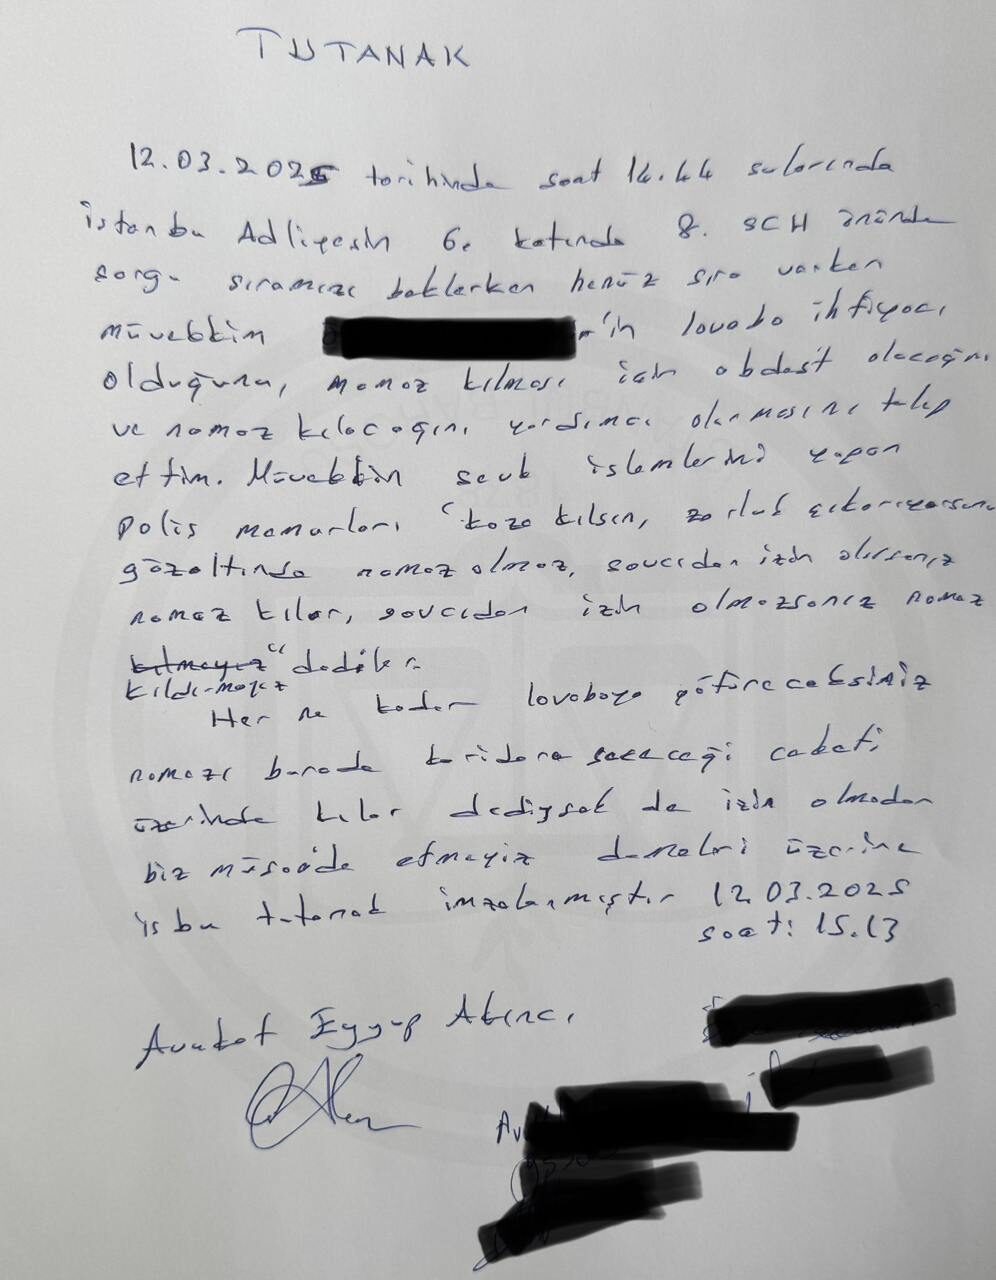 TUTANAK
12.03.2025 tarihinde saat 14.44 sularında
İstanbu Adliyesin 6. katında 8. SCH önünde
sorgu sıramızı beklerken henüz sıra varken
müvekkim 'in lavabo ihtiyacı
olduğunu, namaz kılması için abdest alacağını
ve namaz kılacağını yardımcı olunmasını talep
ettim. Müvekkilin sevk işlemlerini yapan
polis memurları "kaza kılsın, zorluk çıkarıyorsunuz
gözaltında namaz olmaz, savcıdan izin alırsanız
namaz kılar, savcıdan izin almazsanız namaz
kılmayız" dediler.
kıldırmayız
Her ne kadar lavaboya götüreceksiniz
namazı burada koridora sereceği caketi
üzerinde kılar dediysek de izin olmadan
biz müsaade etmeyiz demeleri üzerine
işbu tutanak imzalanmıştır 12.03.2025
saat: 15.13
Avukat Eyyup Akıncı
Av